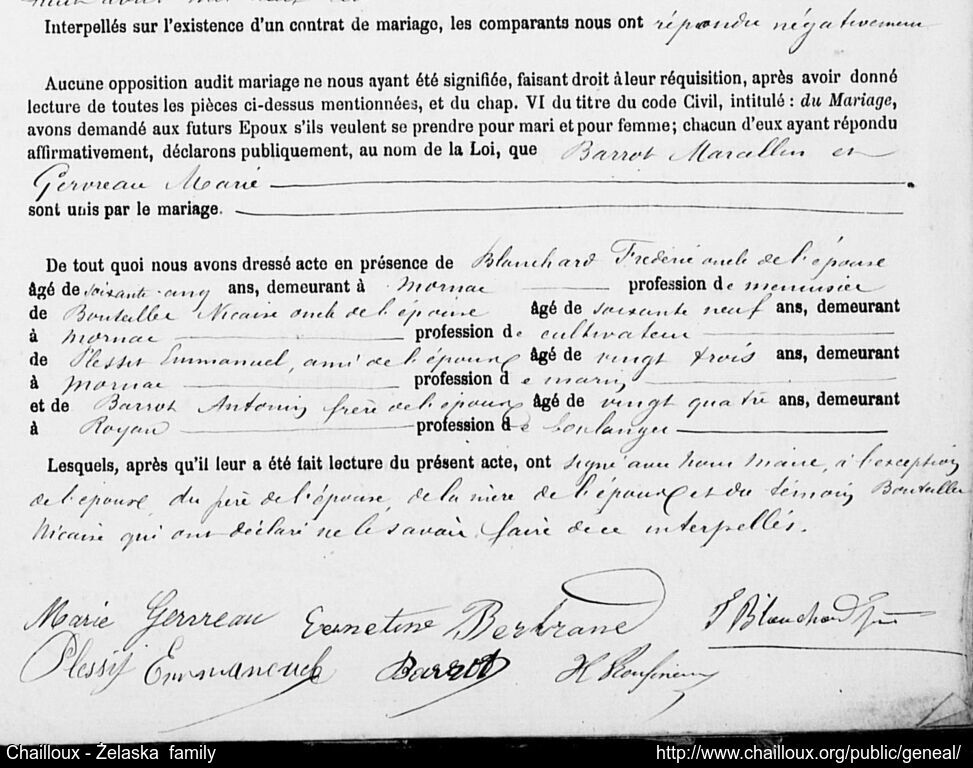 Interpellés sur l'existence d'un contrat de mariage, les comparants nous ont répondu négativement
Aucune opposition audit mariage ne nous ayant été signifiée, faisant droit à leur réquisition, après avoir donné
lecture de toutes les pièces ci-dessus mentionnées, et du chap. VI du titre du code Civil, intitulé : du Mariage,
avons demandé aux futurs Epoux s'ils veulent se prendre pour mari et pour femme; chacun d'eux ayant répondu
affirmativement, déclarons publiquement, au nom de la Loi, que Barrot Marcellin et
Gervreau Marie
sont unis par le mariage.
De tout quoi nous avons dressé acte en présence de Blanchard Frédéric oncle de l'épouse
âgé de soixante-cinq ans, demeurant à Mornac profession de menuisier
de Boutaller Nicaise oncle de l'épouse âgé de soixante neuf ans, demeurant
à Mornac profession de cultivateur
de Plessis Emmanuel, ami de l'époux âgé de vingt trois ans, demeurant
à Mornac profession de marin
et de Barrot Antonin frère de l'époux âgé de vingt quatre ans, demeurant
à Royan profession de boulanger
Lesquels, après qu'il leur a été fait lecture du présent acte, ont signé avec Nous Maire, à l'exception
de l'époux, du père de l'épouse, de la mère de l'époux et du témoin Boutaller
Nicaise qui ont déclaré ne le savoir faire de ce interpellés.
Marie Gervreau Ernetine Bertrane F Blanchard
Plessis Emmanuel Barrot H
Chailloux - Żelaska family http://www.chailloux.org/public/geneal/